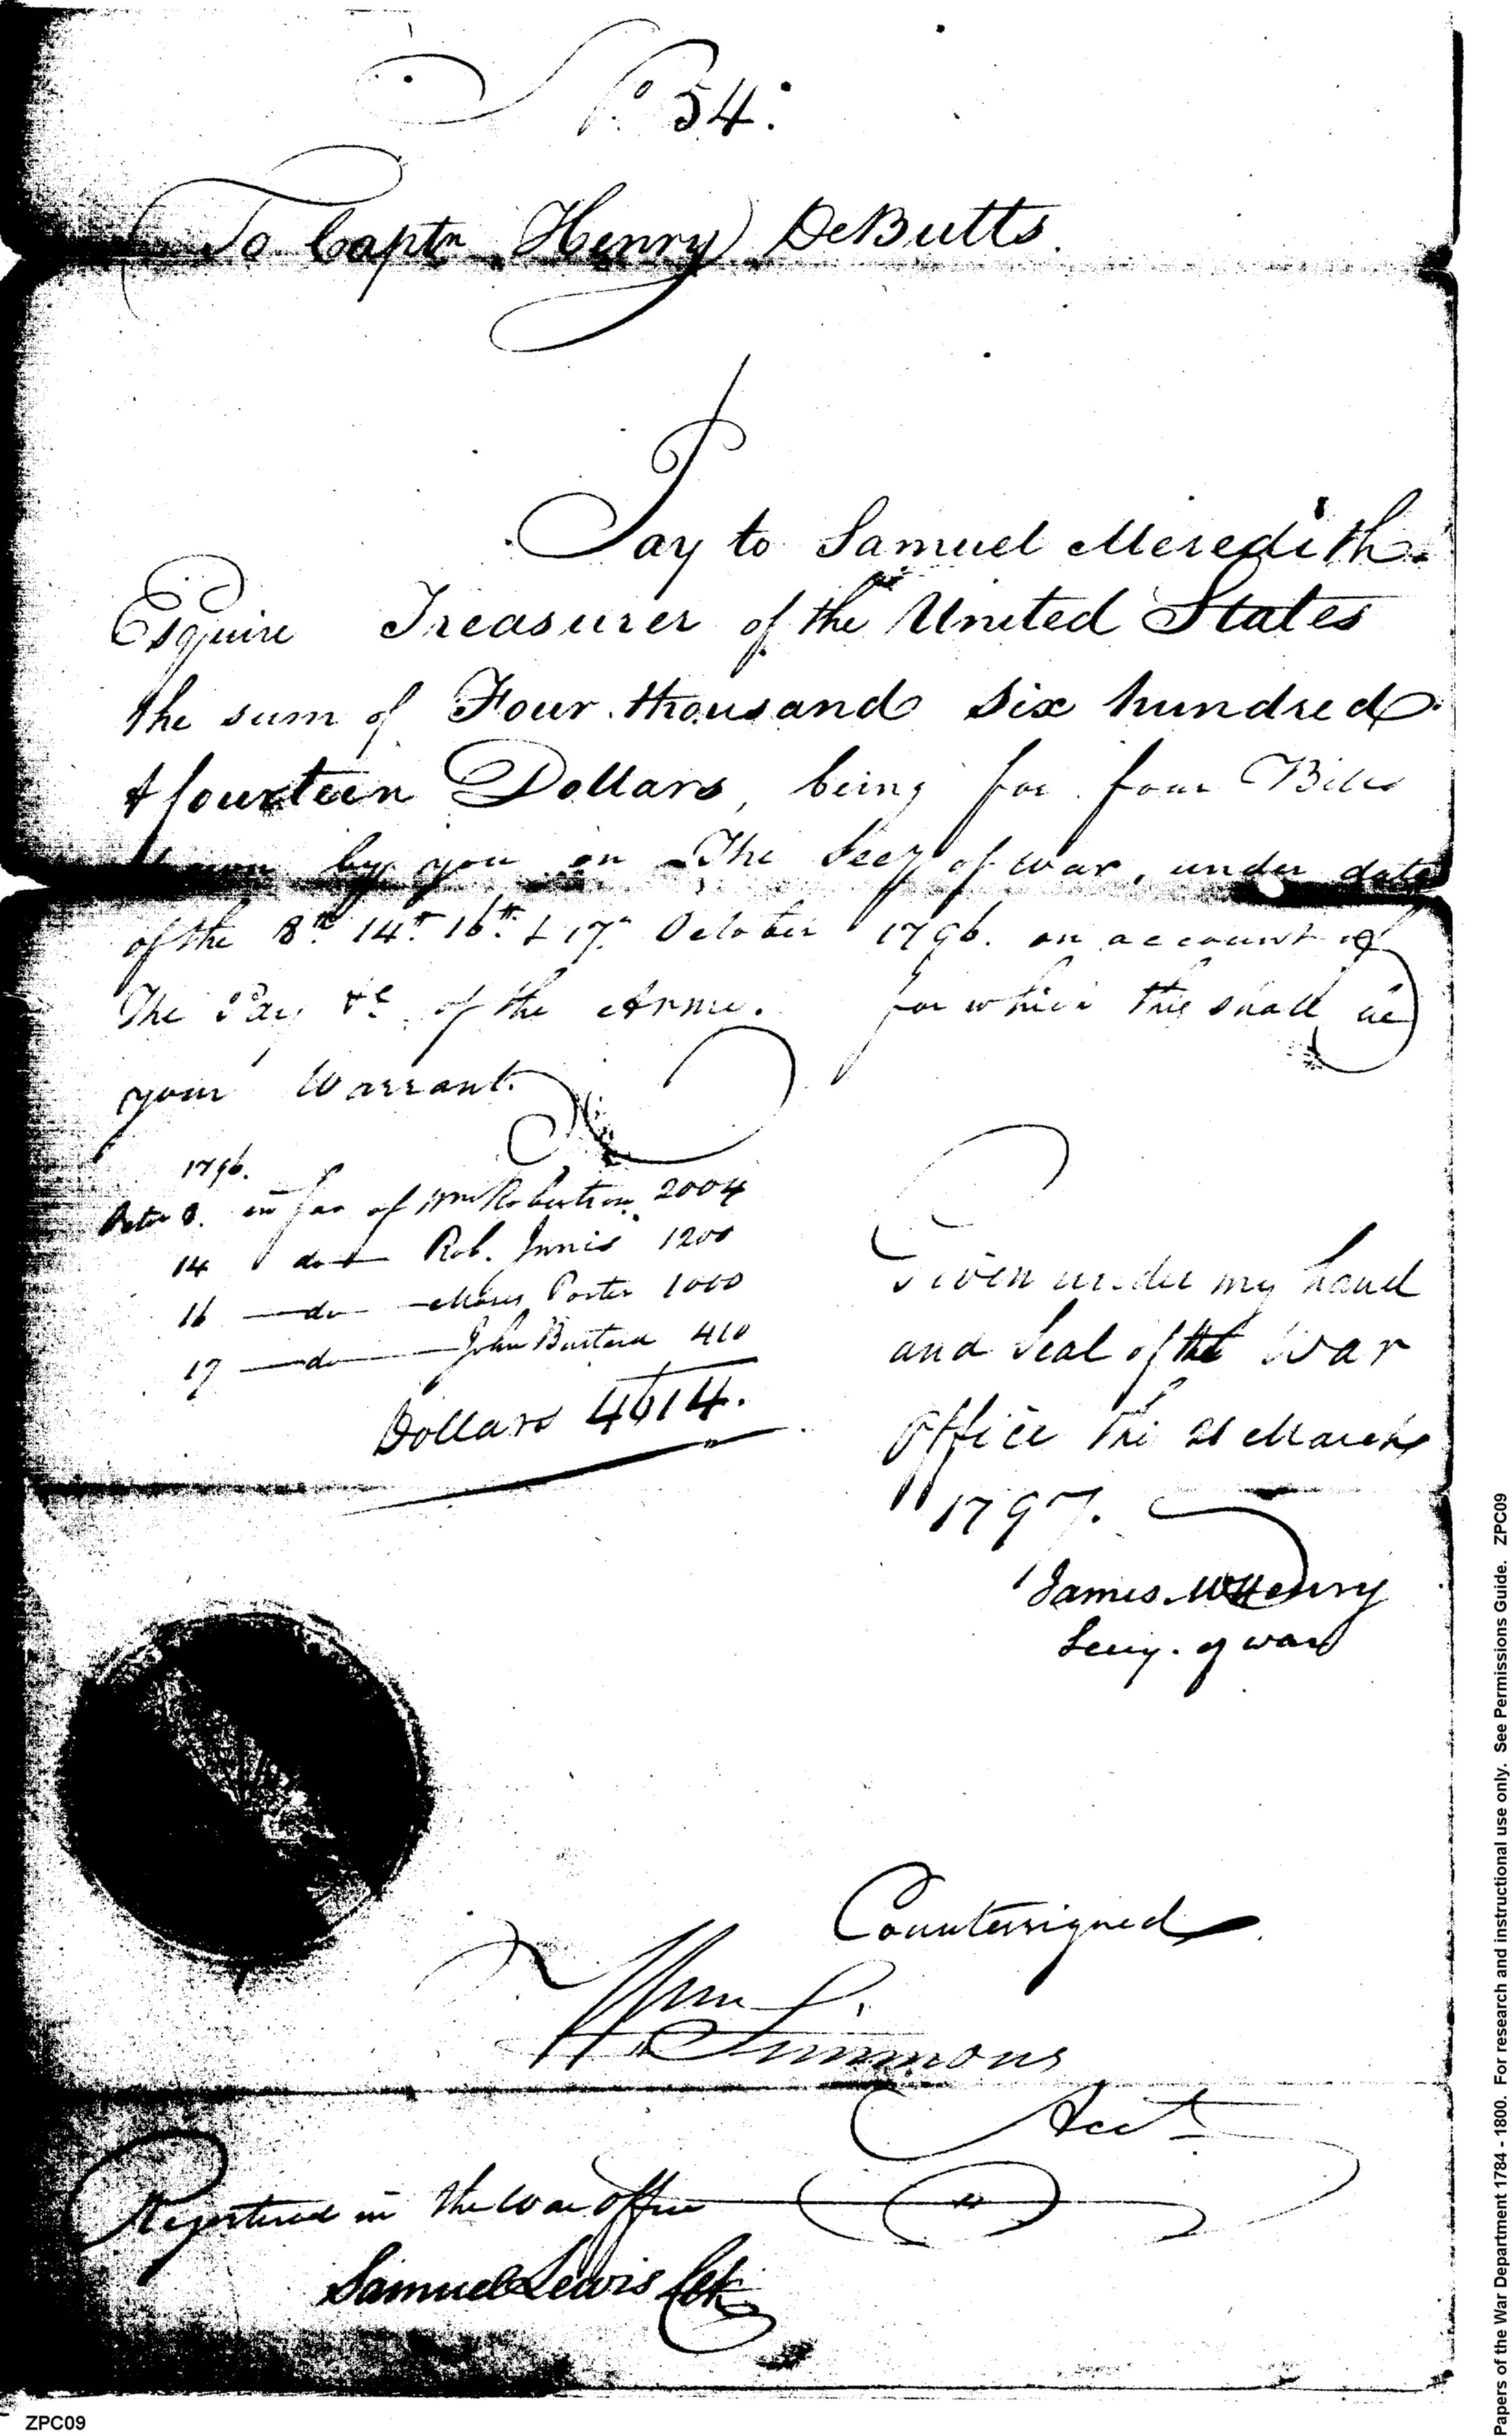 No. 54.
To Captn Henry DeButts.
Pay to Samuel Meredith
Esquire Treasurer of the United States
the sum of Four thousand six hundred
& fourteen Dollars, being for four Bills
drawn by you on The Secy of War, under date
of the 8th 14th 16th & 17th October 1796. on account of
The Pay &c of the Army. for which this shall be
your Warrant.
1796.
Octor 8. in fav of Wm Robertson 2004
14 do Rob. Innis 1200
16 do Moses Porter 1000
17 do John 410
Dollars 4614.
Given under my hand
and Seal of the War
Office the 21 March
1797.
James McHenry
Secry. of war
Countersigned
Wm Simmons
Acct
Registered in the War Office
Samuel Lewis Clk
ZPC09
Papers of the War Department 1784 - 1800. For research and instructional use only. See Permissions Guide. ZPC09